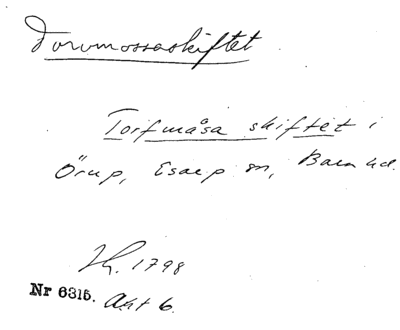 Torvmossaskiftet
Torfmåsa skiftet i
Örup, Esarp sn, Bara hd.
Lh. 1798
Nr 6315. Akt 6.